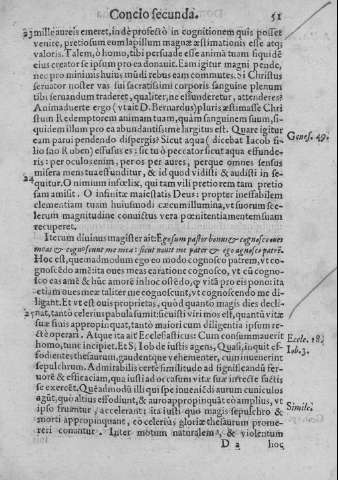 Concio secunda. 51
23 mille aureis emeret, inde profectò in cognitionem quis posset
venire, pretiosum eum lapillum magnæ æstimationis esse atq;
valoris. Talem, ò homo, tibi persuade esse animã tuam siquidẽ
eius creator se ipsum pro ea donauit. Eam igitur magni pende,
nec pro minimis huius mũdi rebus eam commutes. Si Christus
seruator noster vas sui sacratissimi corporis sanguine plenum
tibi seruandum traderet, qualiter, ne effunderetur, attenderes?
Animaduerte ergo (vt ait D. Bernardus) pluris æstimasse Chri
stum Redemptorem animam tuam, quàm sanguinem suum, si-
quidem illum pro ea abundantissime largitus est. Quare igitur
eam parui pendendo dispergis? Sicut aqua (dicebat Iacob fi-
Genes. 49.
lio suo Ruben) effusus es: sic tu ò peccator sicut aqua effunde-
ris: per oculos enim, per os per aures, perque omnes sensus
misera mens tua effunditur, & id quod vidisti & audisti in se-
24 quitur. O nimium infœlix, qui tam vili pretiorem tam pretio
sam amisit. O infinita maiestatis Deus: propter ineffabilem
clementiam tuam huiusmodi cæcum illumina, vt suorum sce-
lerum magnitudine conuictus vera pœnitentia mentem suam
recuperet.
Iterum diuinus magister ait: Ego sum pastor bonus & cognosco oues
meas & cognoscunt me meæ: sicut nouit me pater & ego agnosco patrẽ.
Hoc est, quemadmodum ego eo modo cognosco patrem, vt co-
gnoscẽdo amẽ: ita oues meas earatione cognosco, vt cũ cogno-
sco eas amẽ & hũc amorẽ in hoc ostẽdo, q vitã pro eis pono: ita
etiam oues meæ taliter me cognoscunt, vt cognoscendo me di-
ligant. Et vt est ouis proprietas, quòd quanto magis dies decli-
25 nat, tantò celerius pabula sumit: sic iusti viri mos est, quantũ vitæ
suæ finis appropinquat, tantò maiori cum diligentia ipsum re-
ctè operari. Atque ita ait Ecclesiasticus: Cum consummauerit
Eccle. 18.
homo, tunc incipiet. Et S. Iob de iustis agens, Quasi, inquit ef-
Iob. 3.
fodientes thesaurum, gaudentque vehementer, cum inuenerint
sepulchrum. Admirabilis certè similitudo ad significandũ fer-
uorẽ & efficaciam, qua iusti ad occasum vitæ suæ in rectè factis
se exercẽt. Quẽadmodũ illi qui spe inueniẽdi aurum cuniculos
agũt, quò altius effodiunt, & auro appropinquãt eò amplius, vt
ipso fruantur, accelerant: ita iusti quo magis sepulchro &
Simile.
morti appropinquant, eo celerius gloriæ thesaurum prome-
reri conantur. Inter motum naturalem, & violentum
D 2 hoc